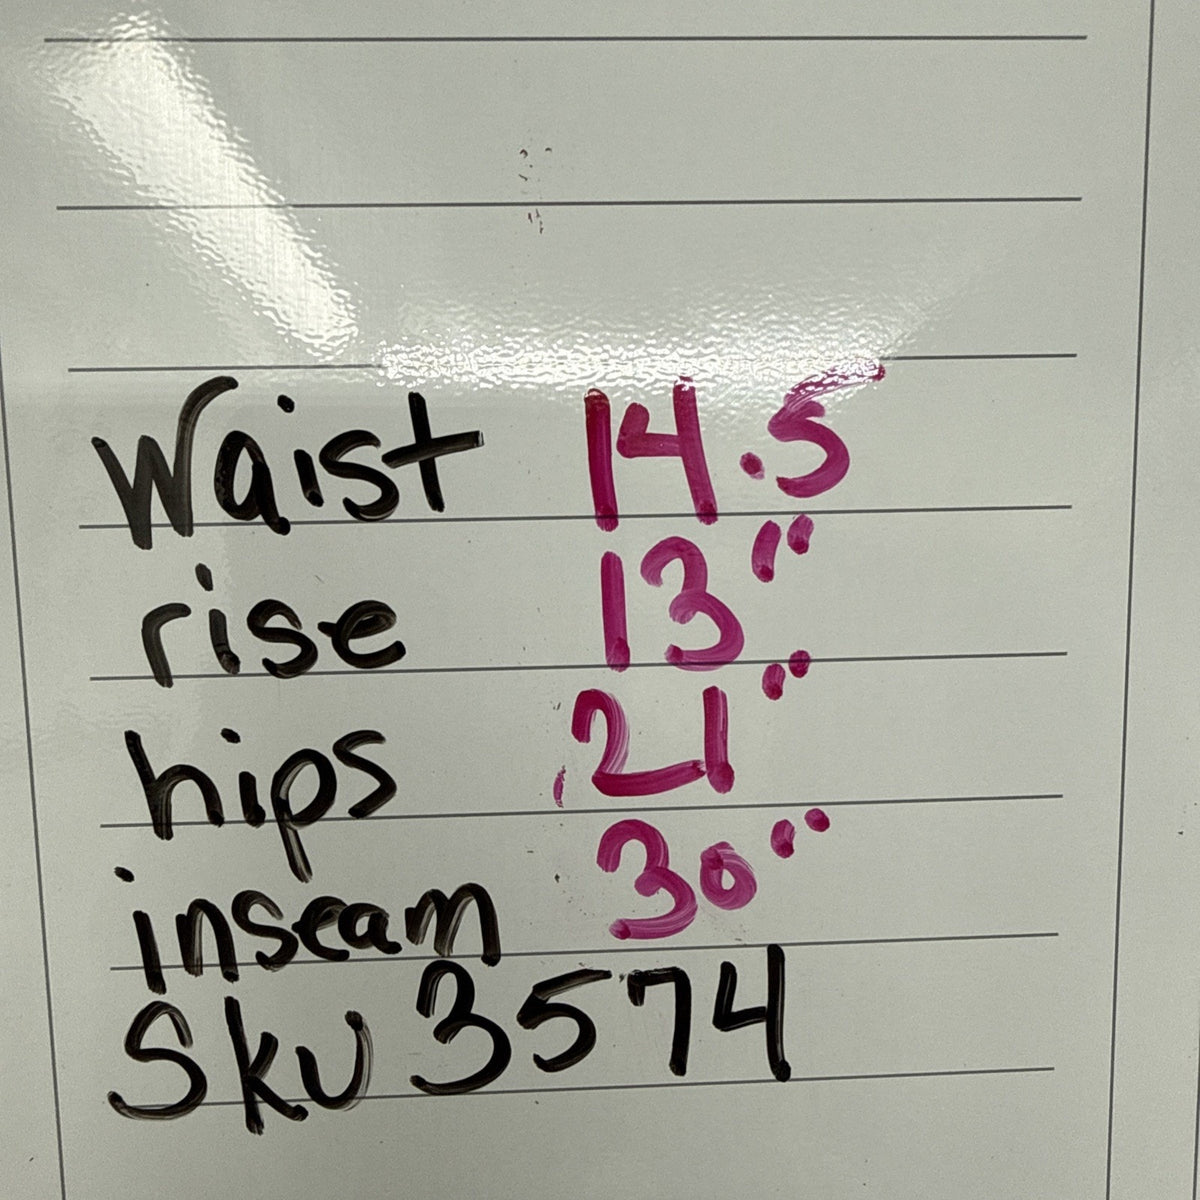 Waist 14.5
rise 13"
hips 21"
inseam 30"
Sku 3574